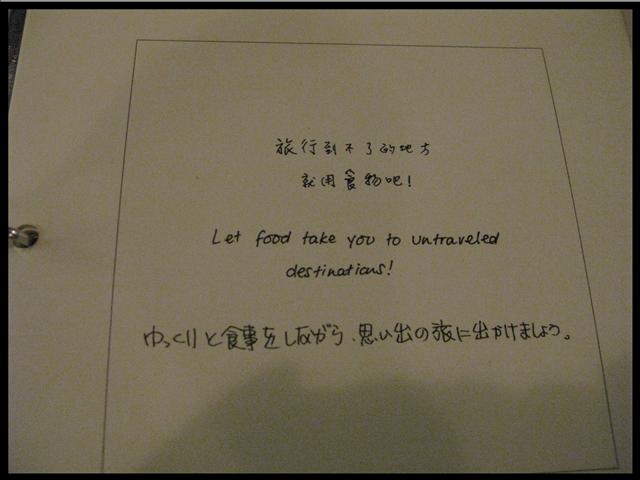 旅行到不了的地方
就用食物吧!
Let food take you to untraveled
destinations!
ゆっくりと食事をしながら、思い出の旅に出かけましょう。